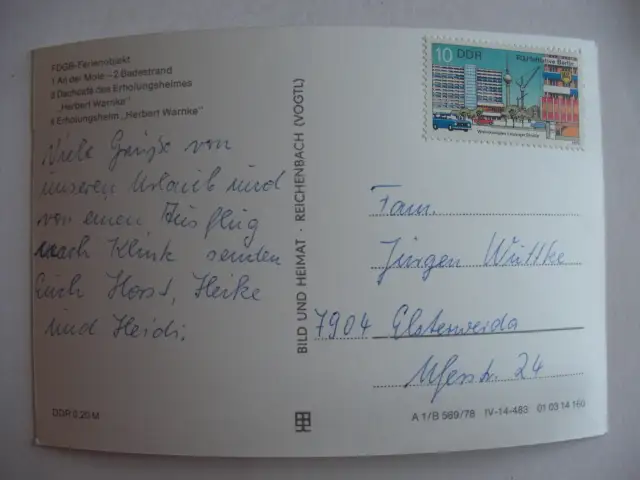 FDGB-Ferienobjekt
1 An der Mole – 2 Badestrand
3 Dachcafe des Erholungsheimes
„Herbert Warnke"
Erholungsheim „Herbert Warnke"
Viele Grüße von
unseren Urlaub und
von einen Ausflug
nach Klink senden
Euch Horst, Heike
und Heidi.
DDR 0,20 M
BILD UND HEIMAT · REICHENBACH (VOGTL)
10 DDR
FDJ-Initiative Berlin
Fam.
Jürgen Wuttke
7904 Elsterwerda
24
A 1/B 569/78 IV-14-483 01 03 14 160